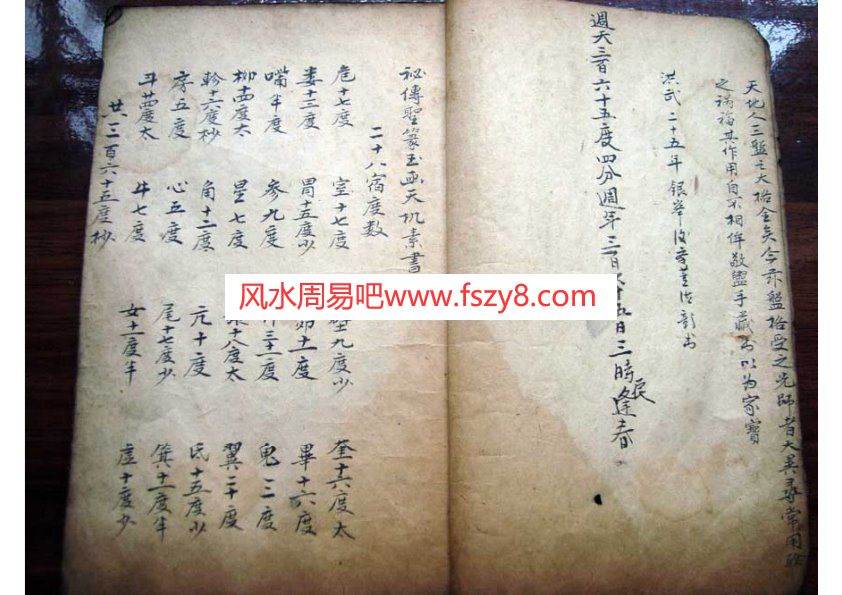 天地人三盤之大格全矣今盤格受之先師者大異尋常用
之禍福其作用自不相侔敬盥手藏書以为家寶
洪武二十五年銀峯
週天三百六十五度四分週年三百六十五日三時辰逢春
秘傳聖篆玉函天机素書
二十八宿度数
危十七度 室十七度 壁九度少 奎十六度太
婁十三度 胃十五度少 昴十一度 畢十六度
嘴半度 参九度 井三十一度 鬼三度
柳十四度太 星七度 張十八度太 翼二十度
軫十六度秒 角十二度 亢十度 氐十五度少
房五度 心五度 尾十七度少 箕十一度半
斗廿四度太 牛七度 女十一度半 虚十度少
共三百六十五度秒
风水周易吧www.fszy8.com